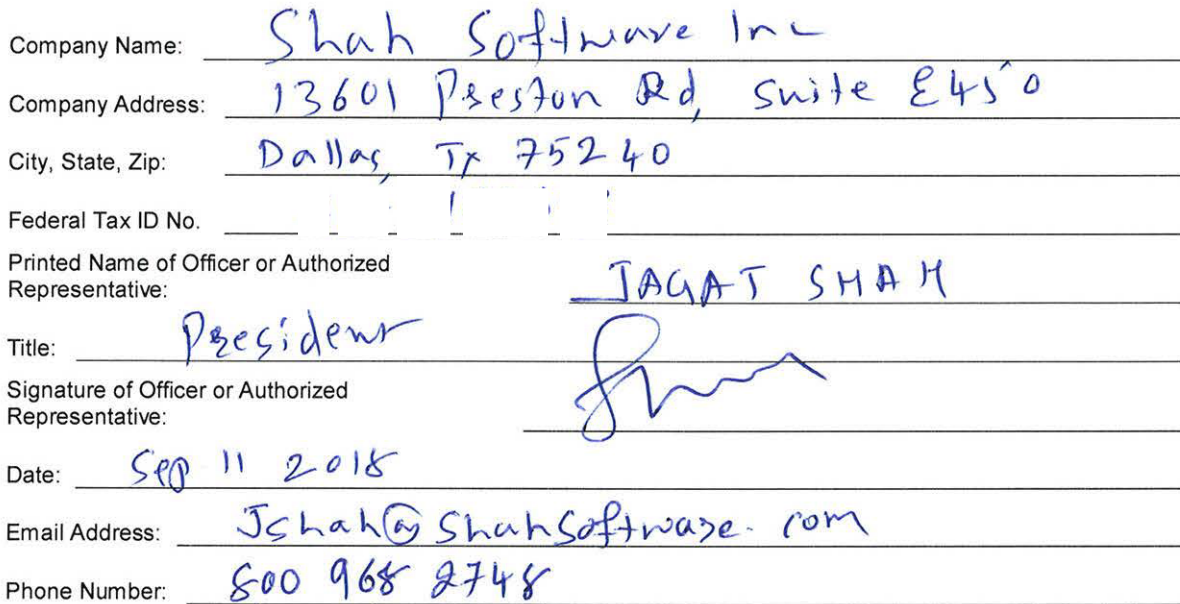 Company Name: Shah Software Inc
Company Address: 13601 Preston Rd, Suite E450
City, State, Zip: Dallas, Tx 75240
Federal Tax ID No.
Printed Name of Officer or Authorized
Representative: JAGAT SHAH
Title: President
Signature of Officer or Authorized
Representative:
Date: Sep 11 2018
Email Address: Jshah@shahsoftware.com
Phone Number: 800 968 2748